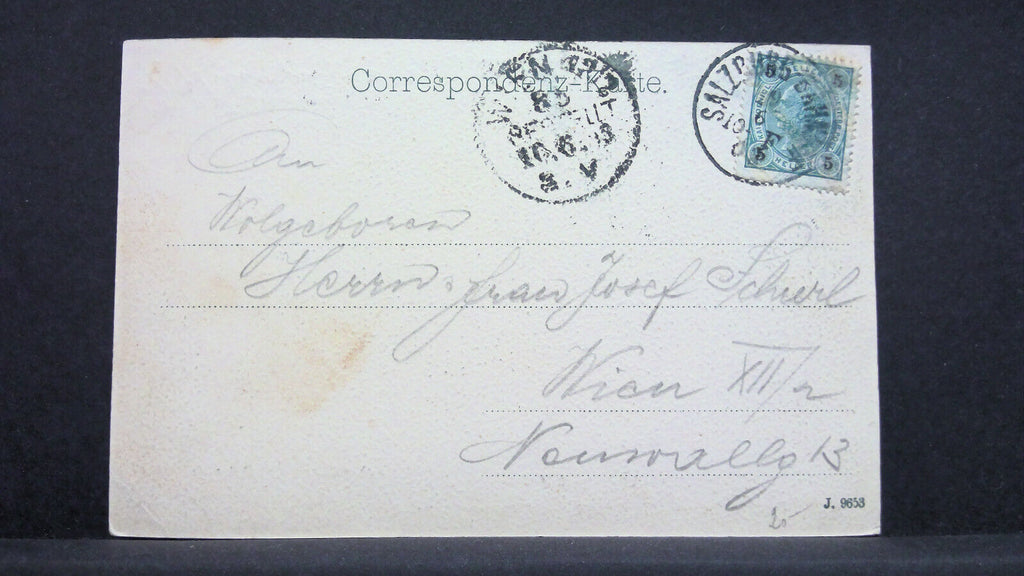 Correspondenz-Karte.
WIEN 12/2
85
BESTELLT
10.6.03
3.N
SALZBURG
5 5
5 5
An
Wolgeboren
Herrn Franz Josef Scherl
Wien XII/2
Neuwallg 13
J. 9653